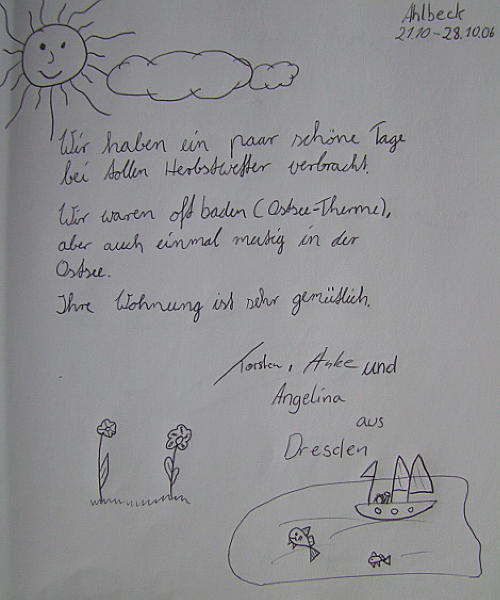 Ahlbeck
21.10 – 28.10.06
Wir haben ein paar schöne Tage
bei tollen Herbstwetter verbracht.
Wir waren oft baden (Ostsee-Therme),
aber auch einmal mutig in der
Ostsee.
Ihre Wohnung ist sehr gemütlich.
Torsten, Anke und
Angelina
aus
Dresden